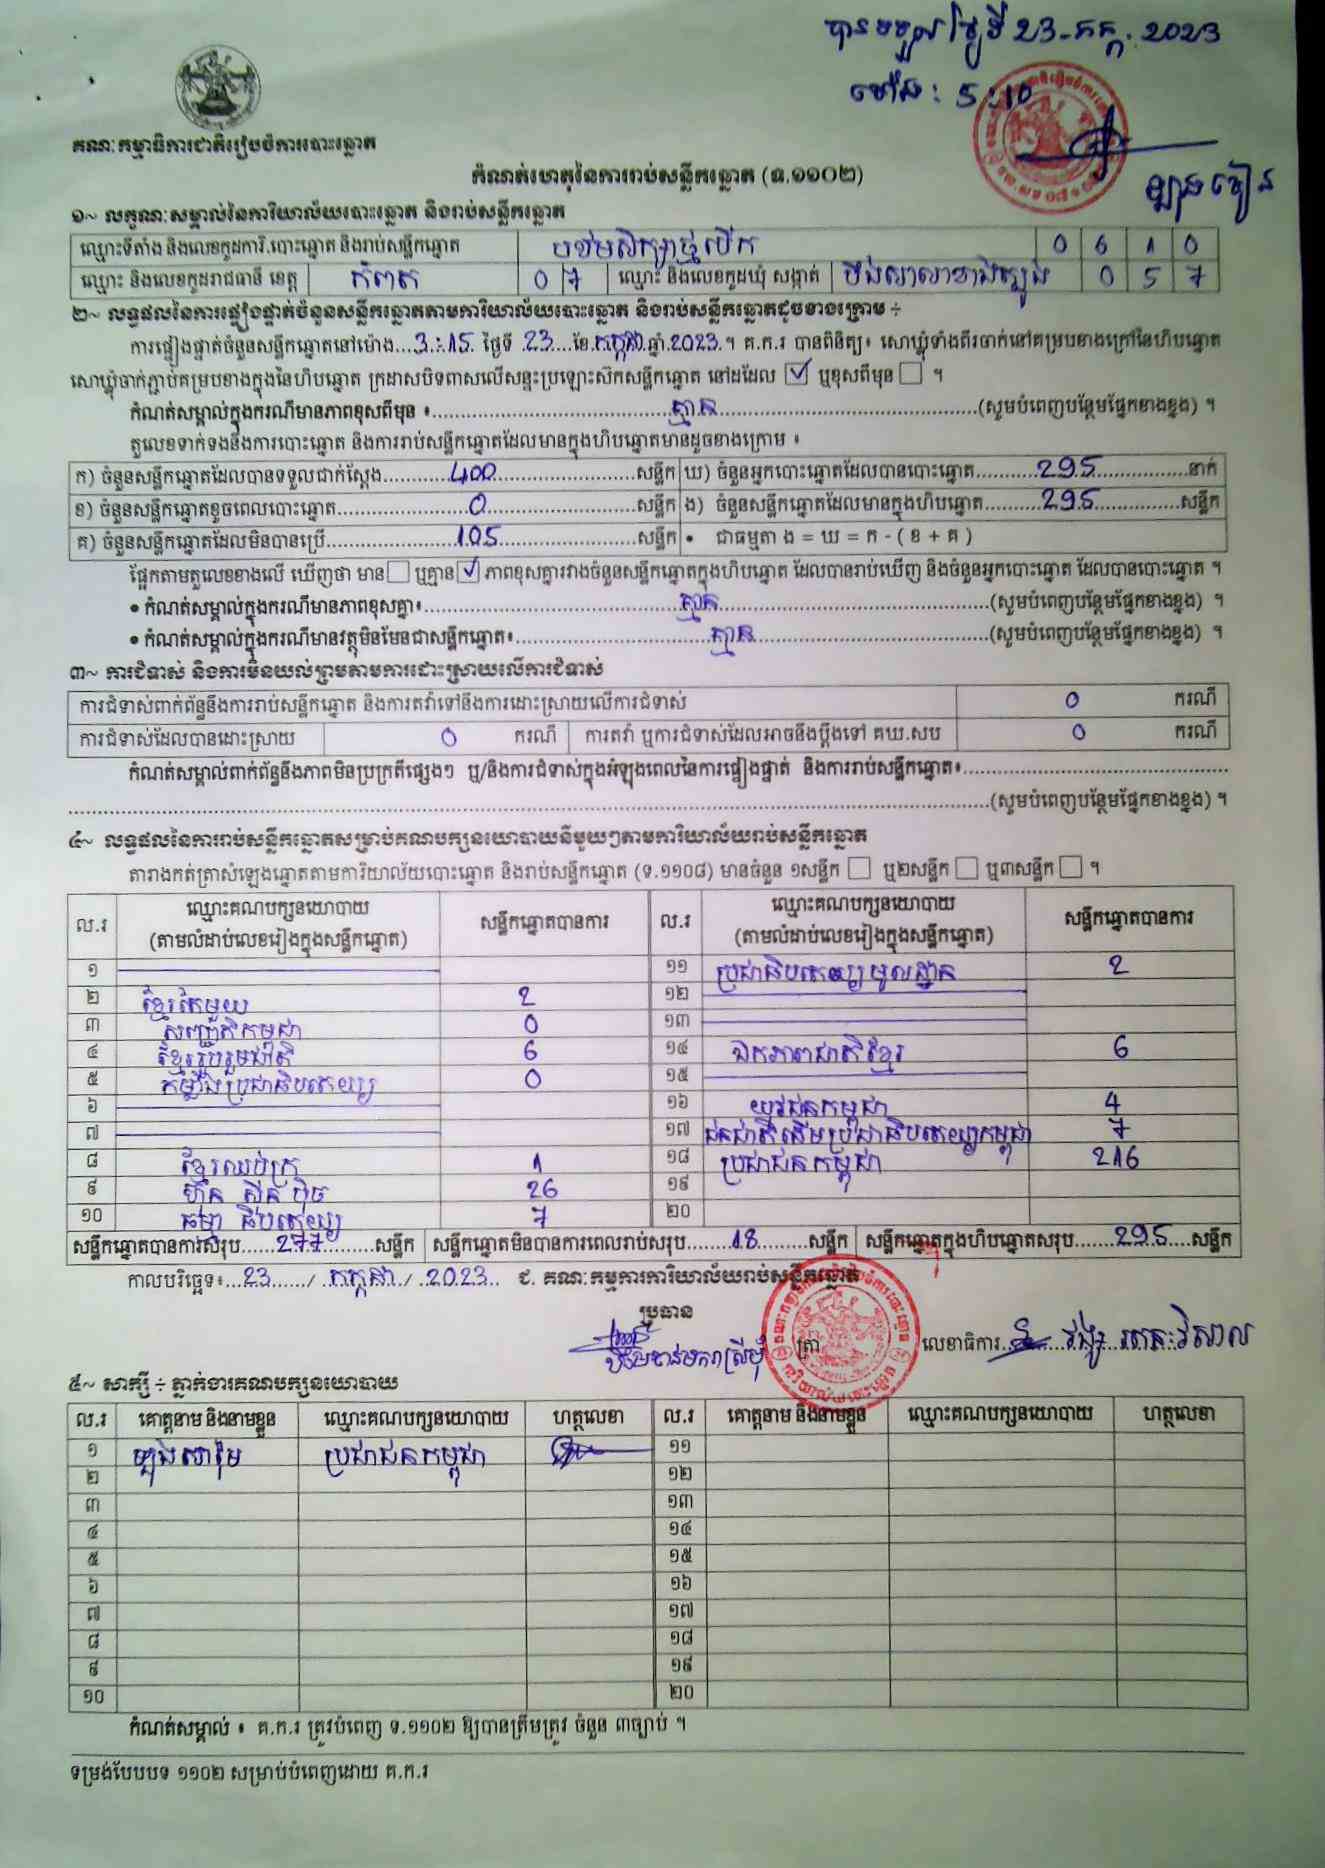 បានទទួល ថ្ងៃទី 23-កក្កដា. 2023
ម៉ោង: 5:10
គណៈកម្មាធិការជាតិរៀបចំការបោះឆ្នោត
កំណត់ហេតុនៃការរាប់សន្លឹកឆ្នោត (ទ.១១០២)
១~ លក្ខណៈសម្គាល់នៃការិយាល័យបោះឆ្នោត និងរាប់សន្លឹកឆ្នោត
ឈ្មោះទីតាំង និងលេខកូដការិ.បោះឆ្នោត និងរាប់សន្លឹកឆ្នោត បឋមសិក្សាថ្មបើក 0 6 1 0
ឈ្មោះ និងលេខកូដរាជធានី ខេត្ត កំពត 0 7 ឈ្មោះ និងលេខកូដឃុំ សង្កាត់ បឹងសាលាខាងត្បូង 0 5 7
២~ លទ្ធផលនៃការផ្ទៀងផ្ទាត់ចំនួនសន្លឹកឆ្នោតតាមការិយាល័យបោះឆ្នោត និងរាប់សន្លឹកឆ្នោតដូចខាងក្រោម ÷
ការផ្ទៀងផ្ទាត់ចំនួនសន្លឹកឆ្នោតនៅម៉ោង...3:15. ថ្ងៃទី .23....ខែ.កក្កដា.ឆ្នាំ.2023.។ គ.ក.រ បានពិនិត្យ៖ សោឃ្លុំទាំងពីរចាក់នៅគម្របខាងក្រៅនៃហិបឆ្នោត
សោឃ្លុំចាក់ភ្ជាប់គម្របខាងក្នុងនៃហិបឆ្នោត ក្រដាសបិទពាសលើសន្ទះប្រឡោះស៊កសន្លឹកឆ្នោត នៅដដែល ☑ ឬខុសពីមុន ☐ ។
កំណត់សម្គាល់ក្នុងករណីមានភាពខុសពីមុន ៖........គ្មាន........(សូមបំពេញបន្ថែមផ្នែកខាងខ្នង) ។
តួលេខទាក់ទងនឹងការបោះឆ្នោត និងការរាប់សន្លឹកឆ្នោតដែលមានក្នុងហិបឆ្នោតមានដូចខាងក្រោម ៖
ក) ចំនួនសន្លឹកឆ្នោតដែលបានទទួលជាក់ស្តែង........400........សន្លឹក ឃ) ចំនួនអ្នកបោះឆ្នោតដែលបានបោះឆ្នោត........295........នាក់
ខ) ចំនួនសន្លឹកឆ្នោតខូចពេលបោះឆ្នោត........0........សន្លឹក ង) ចំនួនសន្លឹកឆ្នោតដែលមានក្នុងហិបឆ្នោត........295........សន្លឹក
គ) ចំនួនសន្លឹកឆ្នោតដែលមិនបានប្រើ........105........សន្លឹក • ជាធម្មតា ង = ឃ = ក - ( ខ + គ )
ផ្អែកតាមតួលេខខាងលើ ឃើញថា មាន ☐ ឬគ្មាន ☑ ភាពខុសគ្នារវាងចំនួនសន្លឹកឆ្នោតក្នុងហិបឆ្នោត ដែលបានរាប់ឃើញ និងចំនួនអ្នកបោះឆ្នោត ដែលបានបោះឆ្នោត ។
• កំណត់សម្គាល់ក្នុងករណីមានភាពខុសគ្នា៖........គ្មាន........(សូមបំពេញបន្ថែមផ្នែកខាងខ្នង) ។
• កំណត់សម្គាល់ក្នុងករណីមានវត្ថុមិនមែនជាសន្លឹកឆ្នោត៖........គ្មាន........(សូមបំពេញបន្ថែមផ្នែកខាងខ្នង) ។
៣~ ការជំទាស់ និងការមិនយល់ព្រមតាមការដោះស្រាយលើការជំទាស់
ការជំទាស់ពាក់ព័ន្ធនឹងការរាប់សន្លឹកឆ្នោត និងការតវ៉ាទៅនឹងការដោះស្រាយលើការជំទាស់ 0 ករណី
ការជំទាស់ដែលបានដោះស្រាយ 0 ករណី ការតវ៉ា ឬការជំទាស់ដែលអាចនឹងប្តឹងទៅ គឃ.សប 0 ករណី
កំណត់សម្គាល់ពាក់ព័ន្ធនឹងភាពមិនប្រក្រតីផ្សេងៗ ឬ/និងការជំទាស់ក្នុងអំឡុងពេលនៃការផ្ទៀងផ្ទាត់ និងការរាប់សន្លឹកឆ្នោត៖........
........(សូមបំពេញបន្ថែមផ្នែកខាងខ្នង) ។
៤~ លទ្ធផលនៃការរាប់សន្លឹកឆ្នោតសម្រាប់គណបក្សនយោបាយនីមួយៗតាមការិយាល័យរាប់សន្លឹកឆ្នោត
តារាងកត់ត្រាសំឡេងឆ្នោតតាមការិយាល័យបោះឆ្នោត និងរាប់សន្លឹកឆ្នោត (ទ.១១០៨) មានចំនួន ១សន្លឹក ☐ ឬ២សន្លឹក ☐ ឬ៣សន្លឹក ☐ ។
ល.រ ឈ្មោះគណបក្សនយោបាយ (តាមលំដាប់លេខរៀងក្នុងសន្លឹកឆ្នោត) សន្លឹកឆ្នោតបានការ ល.រ ឈ្មោះគណបក្សនយោបាយ (តាមលំដាប់លេខរៀងក្នុងសន្លឹកឆ្នោត) សន្លឹកឆ្នោតបានការ
១ ១១ ប្រជាធិបតេយ្យមូលដ្ឋាន 2
២ ខ្មែរតែមួយ 2 ១២
៣ សញ្ជាតិកម្ពុជា 0 ១៣
៤ ខ្មែររួបរួមជាតិ 6 ១៤ ឯកភាពជាតិខ្មែរ 6
៥ កម្លាំងប្រជាធិបតេយ្យ 0 ១៥
៦ ១៦ យុវជនកម្ពុជា 4
៧ ១៧ ជនជាតិដើមប្រជាធិបតេយ្យកម្ពុជា 7
៨ ខ្មែរឈប់ក្រ 1 ១៨ ប្រជាជនកម្ពុជា 216
៩ ហ៊្វុន ស៊ិន ប៉ិច 26 ១៩
១០ ធម្មាធិបតេយ្យ 7 ២០
សន្លឹកឆ្នោតបានការសរុប......277........សន្លឹក សន្លឹកឆ្នោតមិនបានការពេលរាប់សរុប........18........សន្លឹក សន្លឹកឆ្នោតក្នុងហិបឆ្នោតសរុប.......295....សន្លឹក
កាលបរិច្ឆេទ៖...23....../ កក្កដា / ..2023.. ជ. គណៈកម្មការការិយាល័យរាប់សន្លឹកឆ្នោត
ប្រធាន
ត្រា លេខាធិការ........
៥~ សាក្សី ÷ ភ្នាក់ងារគណបក្សនយោបាយ
ល.រ គោត្តនាម និងនាមខ្លួន ឈ្មោះគណបក្សនយោបាយ ហត្ថលេខា ល.រ គោត្តនាម និងនាមខ្លួន ឈ្មោះគណបក្សនយោបាយ ហត្ថលេខា
១ ប្រជាជនកម្ពុជា ១១
២ ១២
៣ ១៣
៤ ១៤
៥ ១៥
៦ ១៦
៧ ១៧
៨ ១៨
៩ ១៩
១០ ២០
កំណត់សម្គាល់ ៖ គ.ក.រ ត្រូវបំពេញ ទ.១១០២ ឱ្យបានត្រឹមត្រូវ ចំនួន ៣ច្បាប់ ។
ទម្រង់បែបបទ ១១០២ សម្រាប់បំពេញដោយ គ.ក.រ